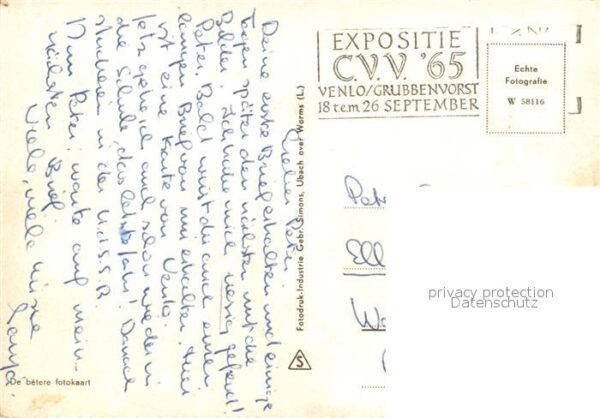 Lieber Peter,
Deine erste Brief erhalten und einige
Tagen später den nächsten mit die
Bilder. Ich habe mich riesig gefreut!
Peter. Bald wirst du auch einen
langen Brief von mir erhalten. Hier
ist eine Karte von Venlo.
Jetzt gehe ich auch schon wieder in
die Schule, das letzte Jahr! Danach
studieren in der U.d.S.S.R.
Nun Peter, warte auf mein
nächsten Brief.
Viele, viele Küsse
De bètere fotokaart
Fotodruk-Industrie Gebr. Simons, Ubach over Worms (L.)
S
EXPOSITIE
C.V.V. '65
VENLO/GRUBBENVORST
18 t.e.m. 26 SEPTEMBER
Echte
Fotografie
W 58116
Pet
Ell
privacy protection
Datenschutz